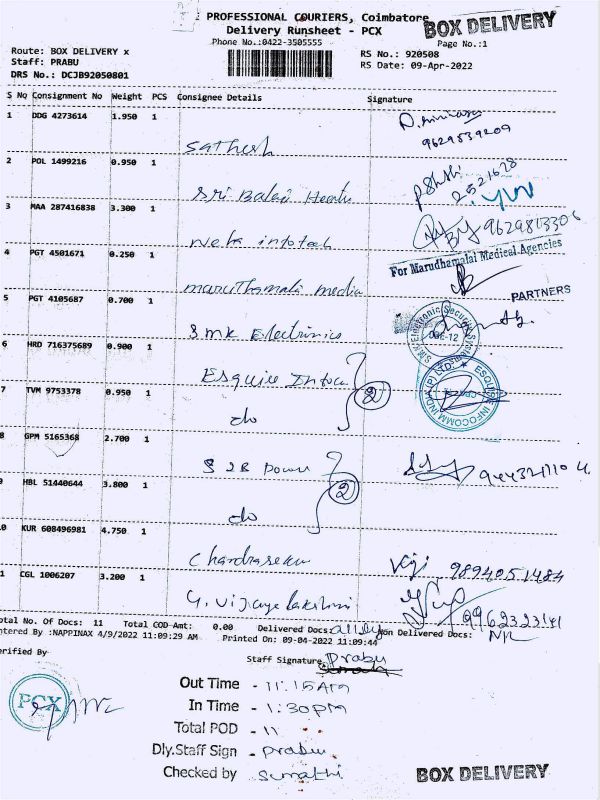 PROFESSIONAL COURIERS, Coimbatore
BOX DELIVERY
Delivery Runsheet - PCX
Phone No.:0422-3505555
Page No.:1
Route: BOX DELIVERY x
Staff: PRABU
DRS No.: DCJB92050801
RS No.: 920508
RS Date: 09-Apr-2022
S No Consignment No Weight PCS Consignee Details Signature
1 DDG 4273614 1.950 1 Sathesh
9629539209
2 POL 1499216 0.950 1 Sri Balaji
2521678
3 MAA 287416838 3.300 1 infotech 9629813306
4 PGT 4501671 0.250 1 maruthamalai media
For Marudhamalai Medical Agencies
PARTNERS
5 PGT 4105687 0.700 1 SMK Electronics
S.M.K Electronic Security Systems
6 HRD 716375689 0.900 1 Esquire Infoco
2
7 TVM 9753378 0.950 1 do
ESQUIRE INFOCOMM INDIA (P) LTD.
8 GPM 5165368 2.700 1 S 2B Power
HBL 51440644 3.800 1 do
2
0 KUR 608496981 4.750 1 Chandraseker
9894051484
1 CGL 1006207 3.200 1 G. Vijayalakshmi
9962323141
otal No. Of Docs: 11 Total COD Amt: 0.00 Delivered Docs: all Non Delivered Docs: NR
ntered By :NAPPINAX 4/9/2022 11:09:29 AM Printed On: 09-04-2022 11:09:44
erified By
Staff Signature Prabu
PCX
Out Time - 11.15Am
In Time - 1:30pm
Total POD - 11
Dly.Staff Sign - Prabu
Checked by Sumathi
BOX DELIVERY